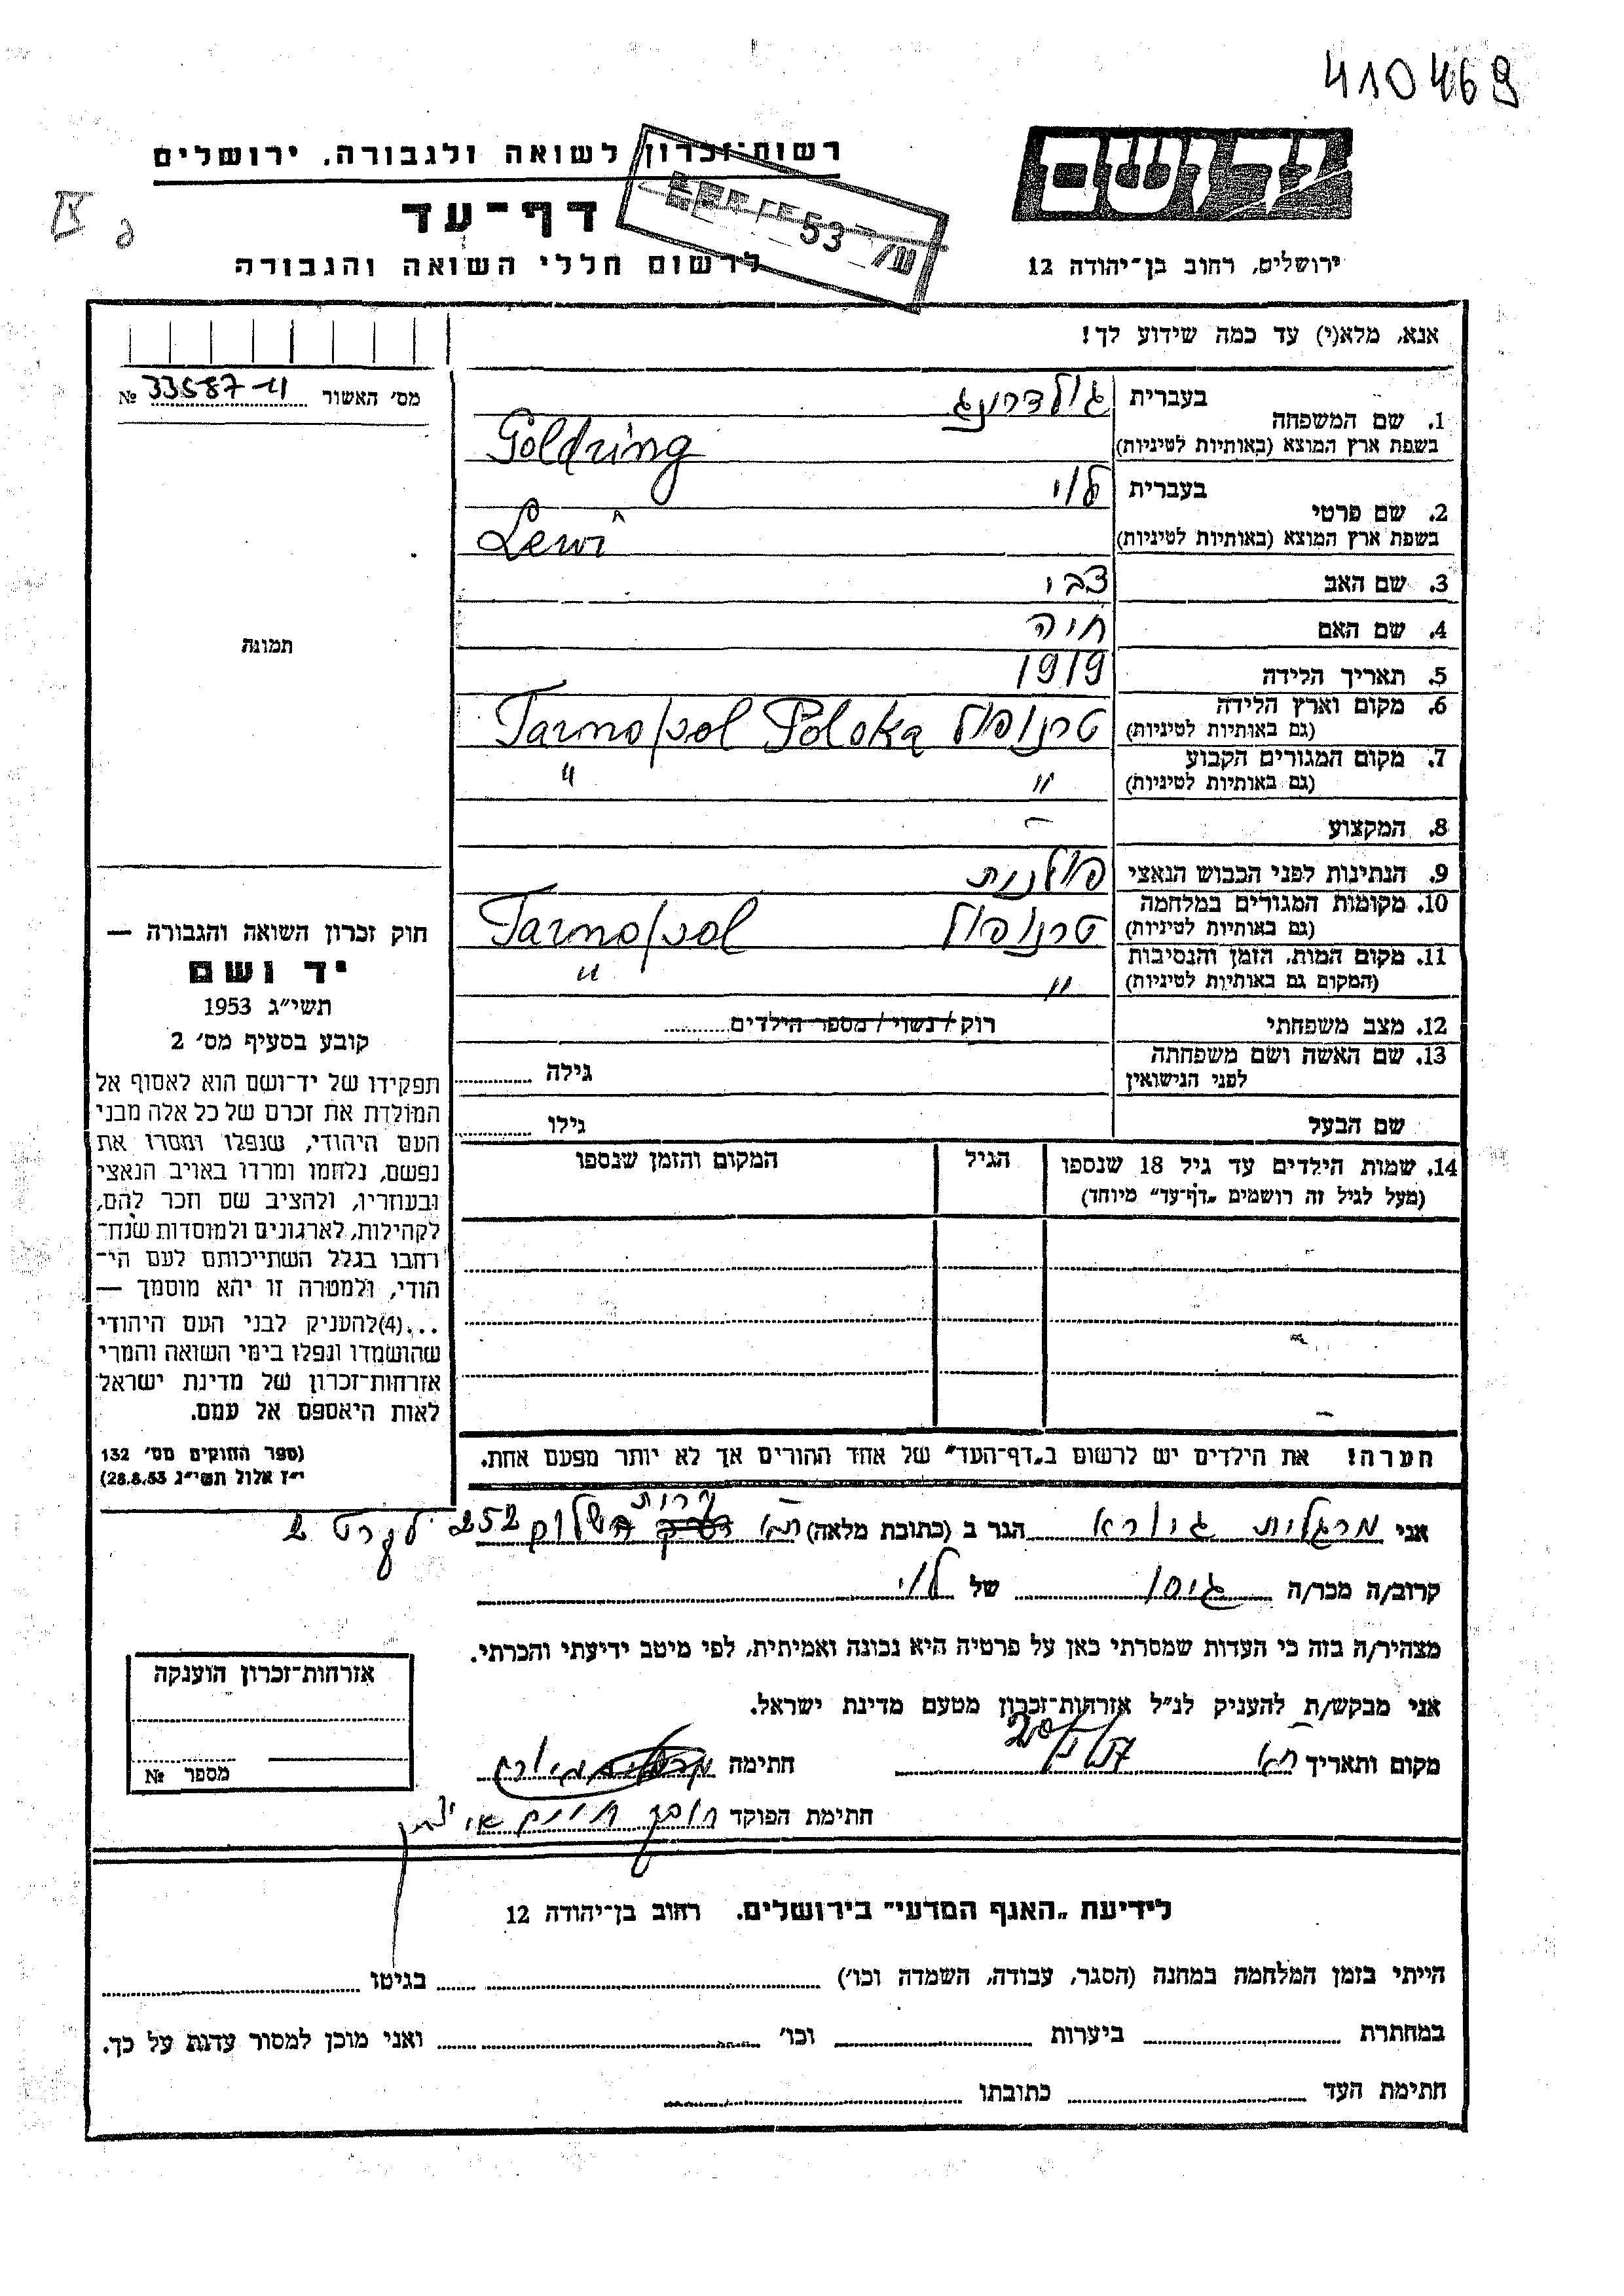 410469
רשות־זכרון לשואה ולגבורה, ירושלים
יד ושם
דף־עד
לרשום חללי השואה והגבורה
ירושלים, רחוב בן־יהודה 12
אנא, מלא(י) עד כמה שידוע לך!
מס׳ האשור № 33587-ч
1. שם המשפחה
בעברית גולדרינג
בשפת ארץ המוצא (באותיות לטיניות) Goldring
2. שם פרטי
בעברית לוי
בשפת ארץ המוצא (באותיות לטיניות) Lewi
3. שם האב צבי
4. שם האם חיה
5. תאריך הלידה 1919
6. מקום וארץ הלידה טרנופול Tarnopol Polska
(גם באותיות לטיניות)
7. מקום המגורים הקבוע " "
(גם באותיות לטיניות)
8. המקצוע -
9. הנתינות לפני הכבוש הנאצי פולנית
10. מקומות המגורים במלחמה טרנופול Tarnopol
(גם באותיות לטיניות)
11. מקום המות, הזמן והנסיבות " "
(המקום גם באותיות לטיניות)
12. מצב משפחתי רוק / נשוי / מספר הילדים
13. שם האשה ושם משפחתה
לפני הנישואין
גילה
שם הבעל
גילו
14. שמות הילדים עד גיל 18 שנספו
(מעל לגיל זה רושמים „דף־עד” מיוחד)
הגיל
המקום והזמן שנספו
הערה! את הילדים יש לרשום ב„דף־העד” של אחד ההורים אך לא יותר מפעם אחת.
תמונה
חוק זכרון השואה והגבורה —
יד ושם
תשי״ג 1953
קובע בסעיף מס׳ 2
תפקידו של יד־ושם הוא לאסוף אל
המולדת את זכרם של כל אלה מבני
העם היהודי, שנפלו ומסרו את
נפשם, נלחמו ומרדו באויב הנאצי
ובעוזריו, ולהציב שם וזכר להם,
לקהילות, לארגונים ולמוסדות שנח־
רחבו בגלל השתייכותם לעם הי־
הודי, ולמטרה זו יהא מוסמך —
...(4) להעניק לבני העם היהודי
שהושמדו ונפלו בימי השואה והמרי
אזרחות־זכרון של מדינת ישראל
לאות היאספם אל עמם.
(ספר החוקים מס׳ 132
י״ז אלול תשי״ג 28.8.53)
אני מרגלית גיורא הגר ב (כתובת מלאה) ת״א דרך השלום 252
קרוב/ה מכר/ה גיסו של לוי
מצהיר/ה בזה כי העדות שמסרתי כאן על פרטיה היא נכונה ואמיתית, לפי מיטב ידיעתי והכרתי.
אני מבקש/ת להעניק לנ״ל אזרחות־זכרון מטעם מדינת ישראל.
מקום ותאריך ת״א
חתימה
חתימת הפוקד
אזרחות־זכרון הוענקה
מספר №
לידיעת „האגף המדעי” בירושלים. רחוב בן־יהודה 12
הייתי בזמן המלחמה במחנה (הסגר, עבודה, השמדה וכו׳) בגיטו
במחתרת ביערות וכו׳ ואני מוכן למסור עדות על כך.
חתימת העד כתובתו